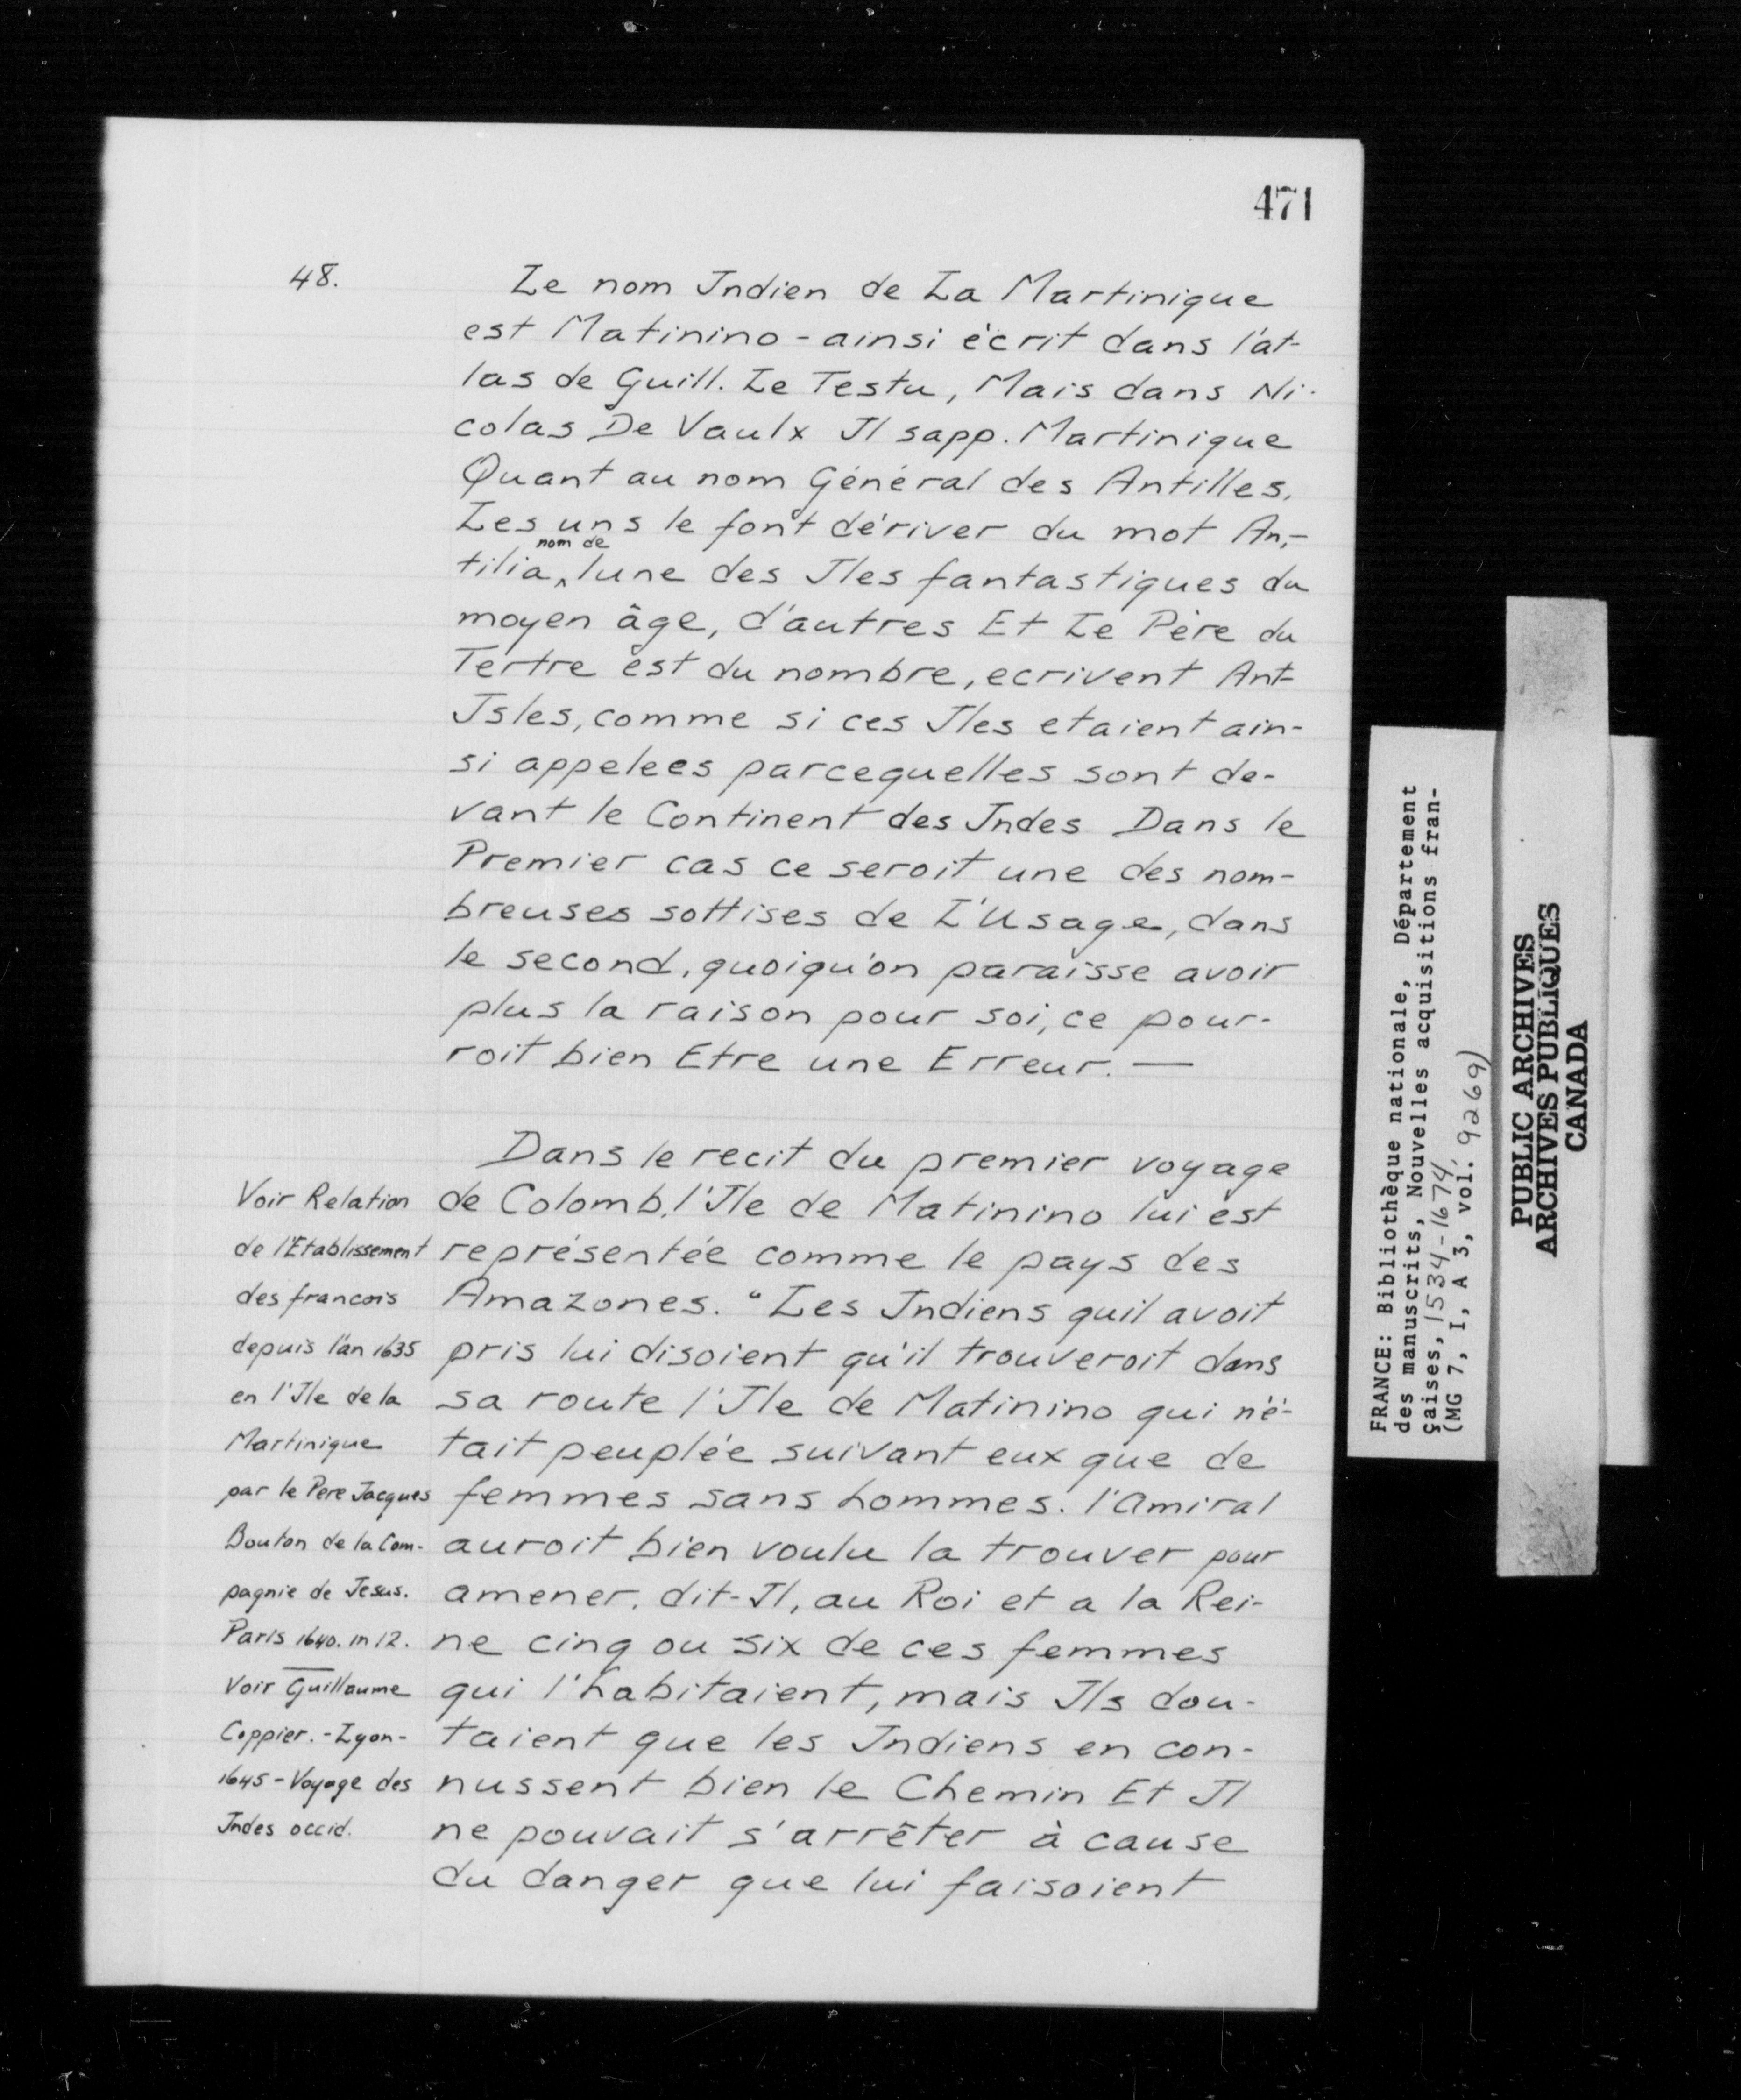 471
48.
Le nom Indien de La Martinique
est Matinino - ainsi écrit dans l'at-
las de Guill. Le Testu, Mais dans Ni-
colas De Vaulx Il sapp. Martinique
Quant au nom Général des Antilles.
Les uns le font dériver du mot An-
nom de
tilia, ^ lune des Iles fantastiques du
moyen âge, d'autres Et Le Père du
Tertre est du nombre, ecrivent Ant-
Isles, comme si ces Iles etaient ain-
si appelees parcequelles sont de-
vant le Continent des Indes Dans le
Premier cas ce seroit une des nom-
breuses sottises de L'Usage, dans
le second, quoiqu'on paraisse avoir
plus la raison pour soi, ce pour-
roit bien Etre une Erreur. —
Dans le recit du premier voyage
de Colomb, l'Ile de Matinino lui est
représentée comme le pays des
Amazones. "Les Indiens quil avoit
pris lui disoient qu'il trouveroit dans
sa route l'Ile de Matinino qui n'é-
tait peuplée suivant eux que de
femmes sans hommes. l'Amiral
auroit bien voulu la trouver pour
amener, dit-Il, au Roi et a la Rei-
ne cinq ou six de ces femmes
qui l'habitaient, mais Ils dou-
taient que les Indiens en con-
nussent bien le Chemin Et Il
ne pouvait s'arrêter à cause
du danger que lui faisoient
Voir Relation
de l'Etablissement
des francois
depuis l'an 1635
en l'Ile de la
Martinique
par le Pere Jacques
Bouton de la Com-
pagnie de Jesus.
Paris 1640. in 12.
Voir Guillaume
Coppier. - Lyon-
1645 - Voyage des
Indes occid.
FRANCE: Bibliothèque nationale, Département
des manuscrits, Nouvelles acquisitions fran-
çaises, 1534-1674,
(MG 7, I, A 3, vol. 9269)
PUBLIC ARCHIVES
ARCHIVES PUBLIQUES
CANADA